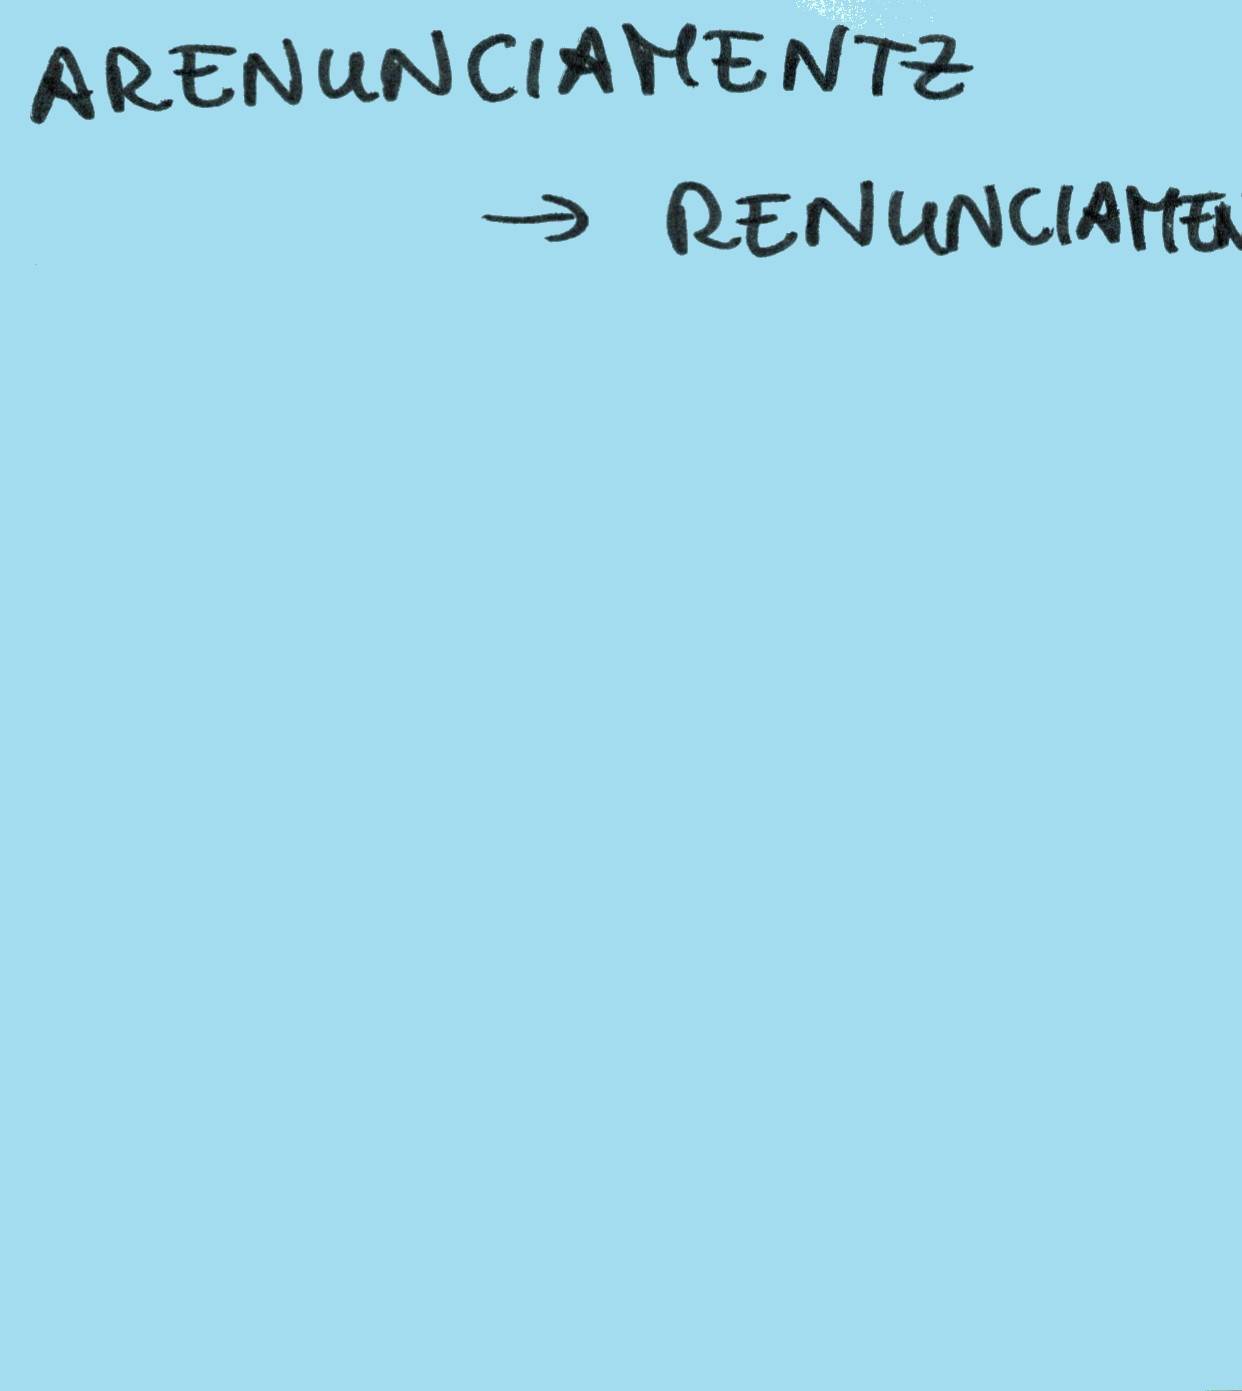 ARENUNCIAMENTZ
→ RENUNCIAMEN